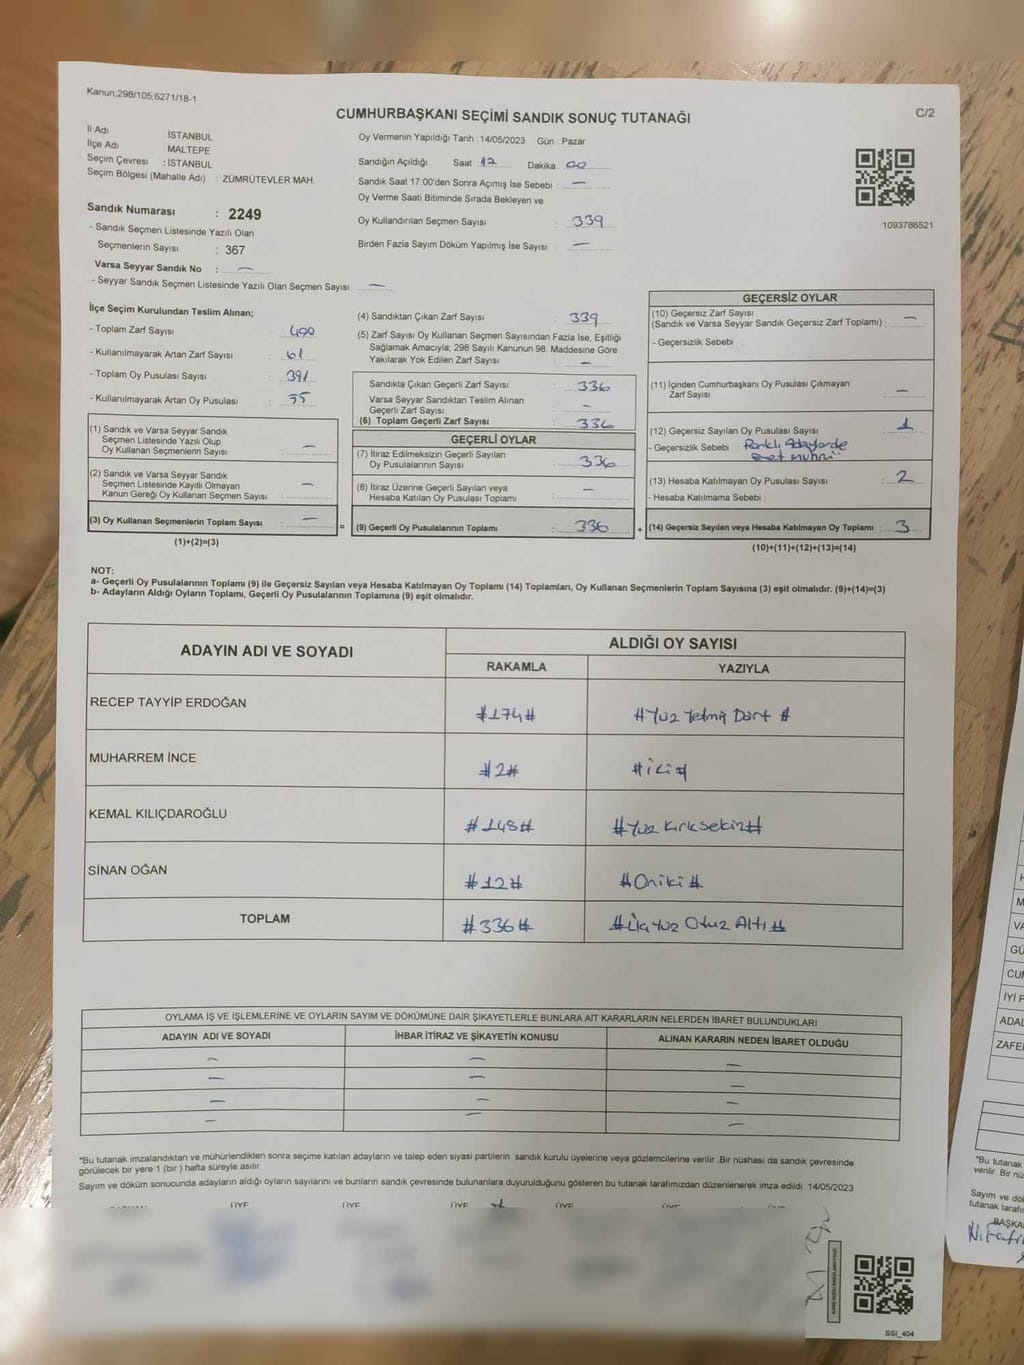 Kanun;298/105,6271/18-1
CUMHURBAŞKANI SEÇİMİ SANDIK SONUÇ TUTANAĞI
C/2
İl Adı : İSTANBUL
İlçe Adı : MALTEPE
Seçim Çevresi : İSTANBUL
Seçim Bölgesi (Mahalle Adı) : ZÜMRÜTEVLER MAH.
Sandık Numarası : 2249
- Sandık Seçmen Listesinde Yazılı Olan
Seçmenlerin Sayısı : 367
Varsa Seyyar Sandık No : —
- Seyyar Sandık Seçmen Listesinde Yazılı Olan Seçmen Sayısı : —
Oy Vermenin Yapıldığı Tarih : 14/05/2023 Gün : Pazar
Sandığın Açıldığı Saat 17 Dakika 00
Sandık Saat 17:00'den Sonra Açımış İse Sebebi : —
Oy Verme Saati Bitiminde Sırada Bekleyen ve
Oy Kullandırılan Seçmen Sayısı : 339
Birden Fazla Sayım Döküm Yapılmış İse Sayısı : —
1093786521
İlçe Seçim Kurulundan Teslim Alınan;
- Toplam Zarf Sayısı : 400
- Kullanılmayarak Artan Zarf Sayısı : 61
- Toplam Oy Pusulası Sayısı : 391
- Kullanılmayarak Artan Oy Pusulası :
(1) Sandık ve Varsa Seyyar Sandık
Seçmen Listesinde Yazılı Olup
Oy Kullanan Seçmenlerin Sayısı : —
(2) Sandık ve Varsa Seyyar Sandık
Seçmen Listesinde Kayıtlı Olmayan
Kanun Gereği Oy Kullanan Seçmen Sayısı : —
(3) Oy Kullanan Seçmenlerin Toplam Sayısı : —
(1)+(2)=(3)
(4) Sandıktan Çıkan Zarf Sayısı : 339
(5) Zarf Sayısı Oy Kullanan Seçmen Sayısından Fazla İse, Eşitliği
Sağlamak Amacıyla; 298 Sayılı Kanunun 98. Maddesine Göre
Yakılarak Yok Edilen Zarf Sayısı : —
Sandıkta Çıkan Geçerli Zarf Sayısı : 336
Varsa Seyyar Sandıktan Teslim Alınan
Geçerli Zarf Sayısı : —
(6) Toplam Geçerli Zarf Sayısı : 336
GEÇERLİ OYLAR
(7) İtiraz Edilmeksizin Geçerli Sayılan
Oy Pusulalarının Sayısı : 336
(8) İtiraz Üzerine Geçerli Sayılan veya
Hesaba Katılan Oy Pusulası Toplamı : —
= (9) Geçerli Oy Pusulalarının Toplamı : 336 +
GEÇERSİZ OYLAR
(10) Geçersiz Zarf Sayısı
(Sandık ve Varsa Seyyar Sandık Geçersiz Zarf Toplamı) : —
- Geçersizlik Sebebi :
(11) İçinden Cumhurbaşkanı Oy Pusulası Çıkmayan
Zarf Sayısı : —
(12) Geçersiz Sayılan Oy Pusulası Sayısı : 1
- Geçersizlik Sebebi : Farklı Adaylarda
evet mührü
(13) Hesaba Katılmayan Oy Pusulası Sayısı : 2
- Hesaba Katılmama Sebebi :
(14) Geçersiz Sayılan veya Hesaba Katılmayan Oy Toplamı : 3
(10)+(11)+(12)+(13)=(14)
NOT:
a- Geçerli Oy Pusulalarının Toplamı (9) ile Geçersiz Sayılan veya Hesaba Katılmayan Oy Toplamı (14) Toplamları, Oy Kullanan Seçmenlerin Toplam Sayısına (3) eşit olmalıdır. (9)+(14)=(3)
b- Adayların Aldığı Oyların Toplamı, Geçerli Oy Pusulalarının Toplamına (9) eşit olmalıdır.
ADAYIN ADI VE SOYADI ALDIĞI OY SAYISI
RAKAMLA YAZIYLA
RECEP TAYYİP ERDOĞAN #174# #Yüz Yetmiş Dört #
MUHARREM İNCE #2# #iki#
KEMAL KILIÇDAROĞLU #148# #Yüz Kırksekiz#
SİNAN OĞAN #12# #Oniki#
TOPLAM #336# #Üç Yüz Otuz Altı#
OYLAMA İŞ VE İŞLEMLERİNE VE OYLARIN SAYIM VE DÖKÜMÜNE DAİR ŞİKAYETLERLE BUNLARA AİT KARARLARIN NELERDEN İBARET BULUNDUKLARI
ADAYIN ADI VE SOYADI İHBAR İTİRAZ VE ŞİKAYETİN KONUSU ALINAN KARARIN NEDEN İBARET OLDUĞU
— — —
— — —
— — —
— — —
*Bu tutanak imzalandıktan ve mühürlendikten sonra seçime katılan adayların ve talep eden siyasi partilerin sandık kurulu üyelerine veya gözlemcilerine verilir .Bir nüshası da sandık çevresinde
görülecek bir yere 1 (bir ) hafta süreyle asılır.
Sayım ve döküm sonucunda adayların aldığı oyların sayılarını ve bunların sandık çevresinde bulunanlara duyurulduğunu gösteren bu tutanak tarafımızdan düzenlenerek imza edildi. 14/05/2023
ÜYE ÜYE ÜYE ÜYE ÜYE ÜYE
SSI_404
GÜ
CUM
İYİ P
ADAL
ZAFE
*Bu tutanak
verilir .Bir nü
Sayım ve dö
tutanak tarafı
BAŞKA